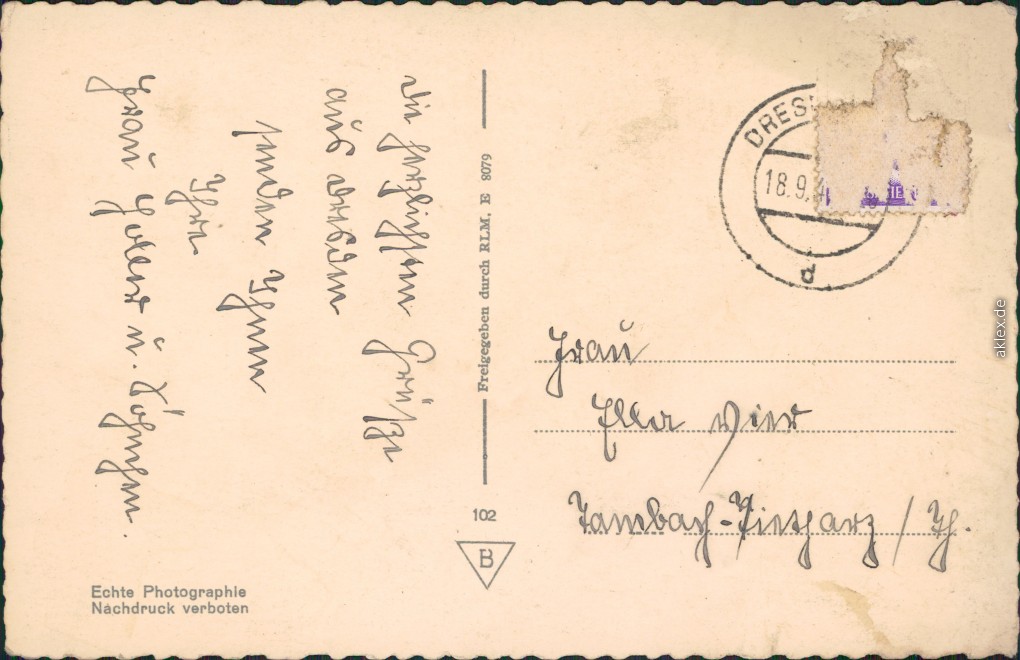 Die herzlichsten Grüße
aus Dresden
senden Ihnen
Ihre
Frau Holler u. Söhnchen.
Freigegeben durch RLM. E 8079
102
B
Echte Photographie
Nachdruck verboten
DRES
18.9.4
d
Frau
Ella
Tambach-Dietharz / Th.
aklex.de